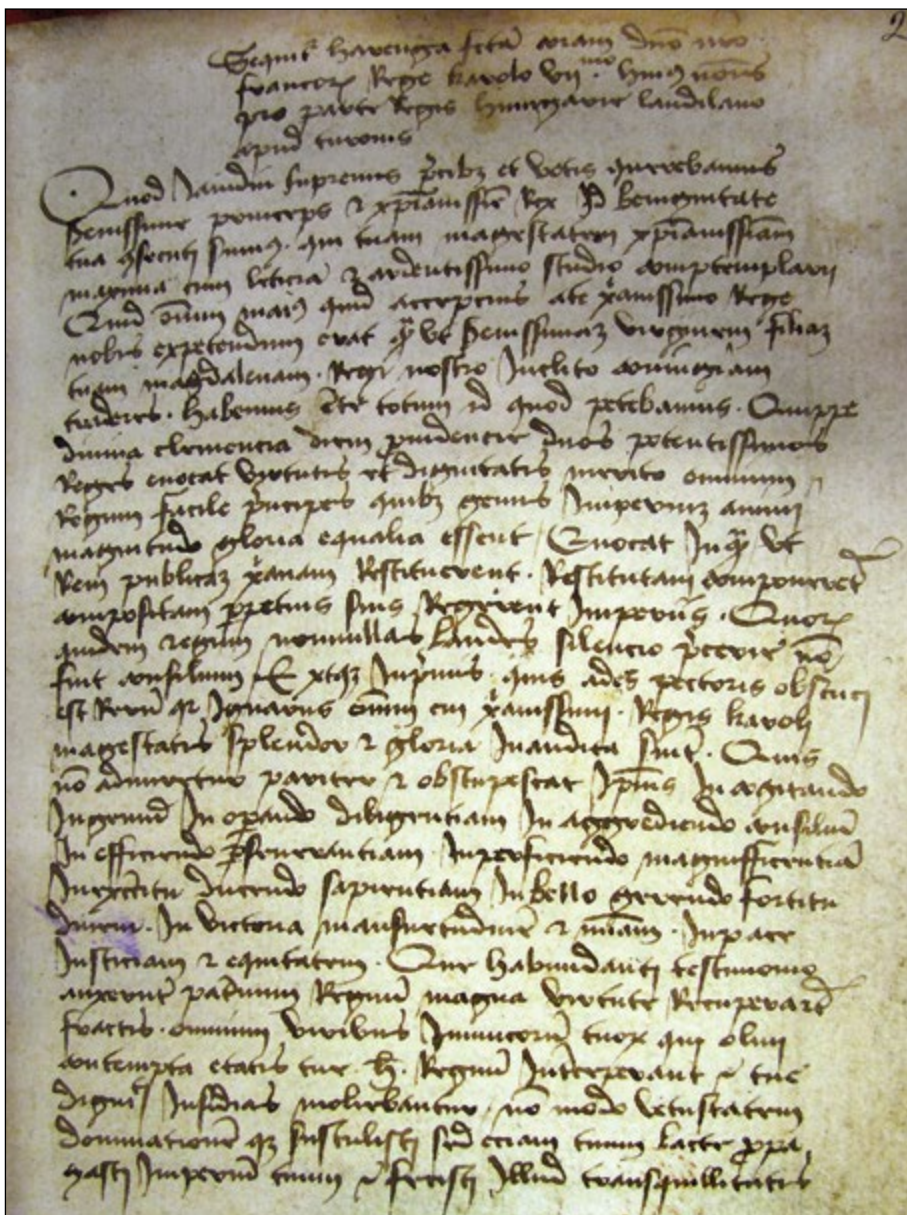 2
Sequitr harenga fcta coram dno nro
francorx Rege karolo vii mo huius nois
pro parte Regis hungarie landilano
apud turonis
Quod Jamdiu supremis pcibz et votis querebamus
Serenissime princeps et xpianissie Rex Id benignitate
tua consecuti sumus. qui tuam magestatem xpianissiam
maxima cum leticia et ardentissimo studio comptemplarii
Quid enim maius quid accepcius a te xpianissimo Rege
nobis expetendum erat qm ut Serenissimaz virginem filiaz
tuam magdalenam. Regi nostro Inclito coniugiam
traderes. habemus totum id quod petebamus. Quippe
divina clemencia duos potentissimos
Reges evocat virtutis et dignitatis merito omnium
Regum facile pncipes quibz genus Imperium animi
magnitudo gloria equalia essent Evocat Inqm ut
Rem publicaz xpianam Restituerent. Restitutam componeret
compositam ppetuis suis Regerent Imperiis. Quorx
quidem regum nonnullas laudes silencio pterire no
fuit consilium Inpmis quis adeo pectoris obscuri
est Reru ignarus cui xpianissimi. Regis karoli
magestatis splendor et gloria Inaudita sint. Quis
no admiretur pariter et obstupescat Ipius In cogitando
Ingeniu In opando diligentiam In aggrediendo consiliu
In efficiendo pseuerantiam Inperficiendo magnifficentia
In exercitu ducendo sapientiam In bello gerendo fortitu
dinem. In victoria mansuetudine et miam. In pace
Justiciam et equitatem. Que habundanti testimonio
Regnu magna virtute Recuperare
fractis. omnium viribus Inimicoru tuorx qui olim
contempta etatis tue. Regnu et tue
dignit Insidias moliebantur. no modo vetustatem
dominatione qz sustulisti sed eciam tuum late ppa
gasti Imperiu tuum et fecisti Illud transquillitatis